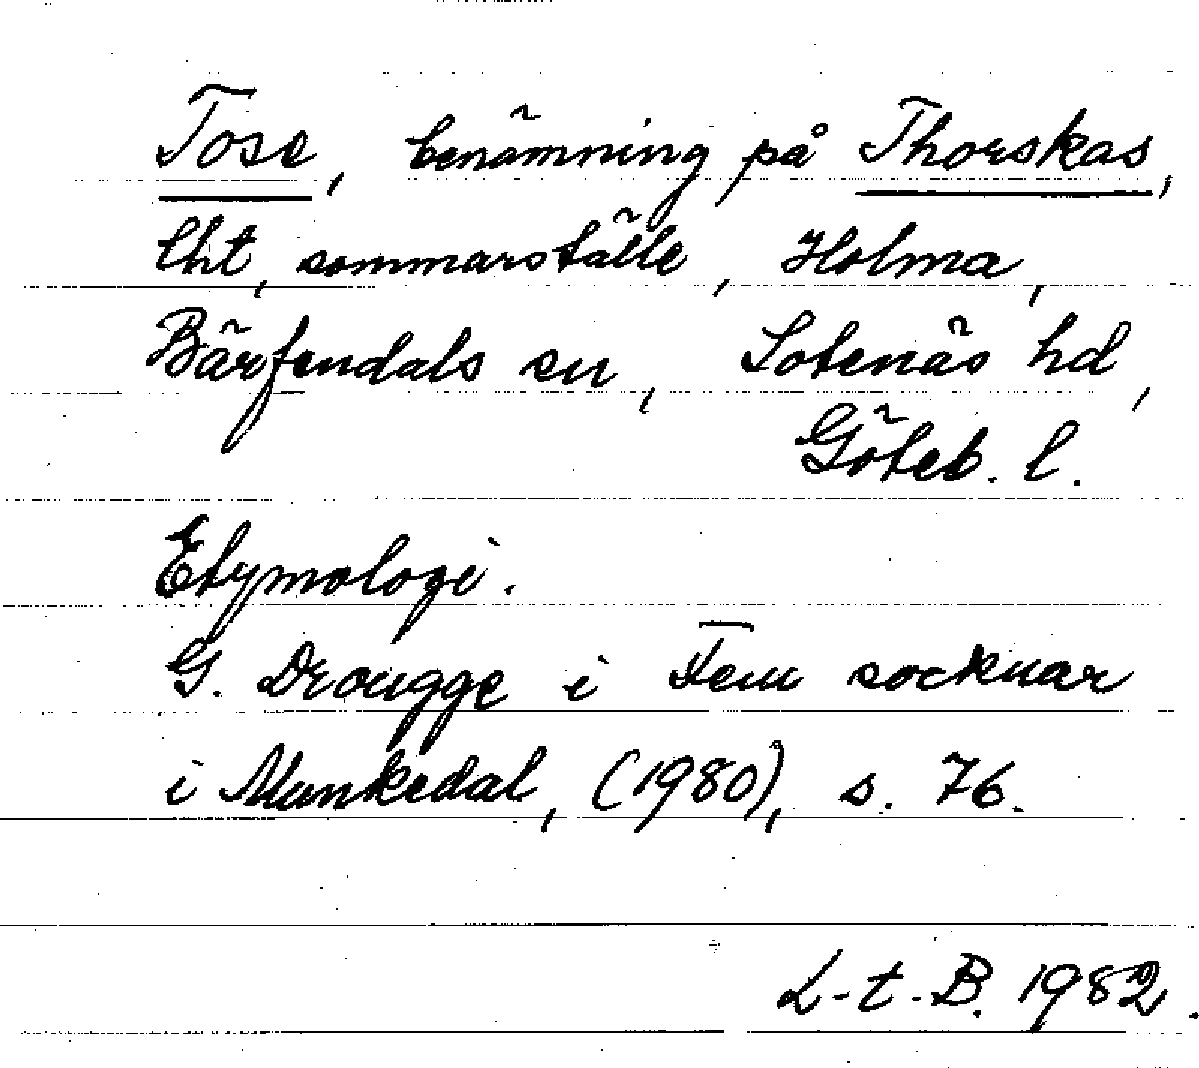 Tose, benämning på Thorskas,
lht, sommarställe, Holma,
Bärfendals sn, Sotenäs hd,
Göteb. l.
Etymologi.
G. Drougge i Fem socknar
i Munkedal, (1980), s. 76.
L-t.B. 1982.